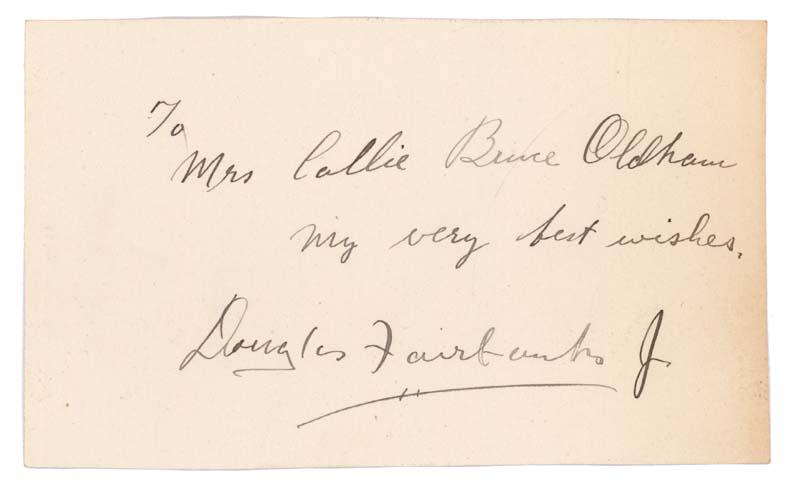 To
Mrs Callie Bruce Oldham
My very best wishes.
Douglas Fairbanks Jr